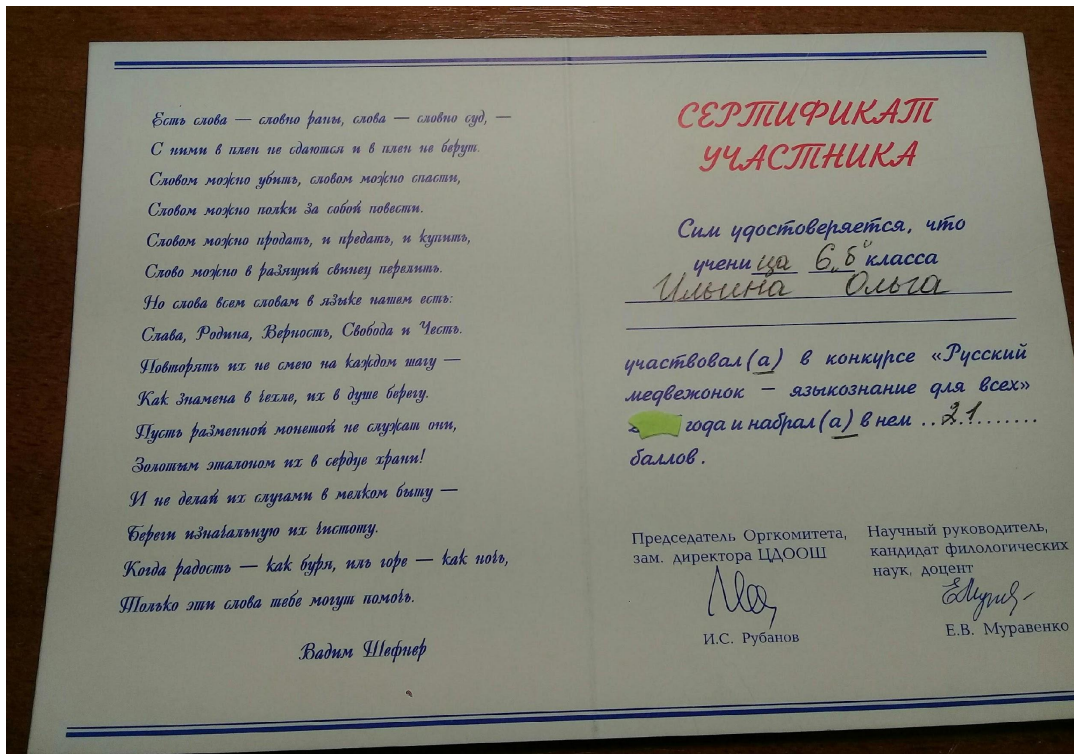 Есть слова — словно раны, слова — словно суд, —
С ними в плен не сдаются и в плен не берут.
Словом можно убить, словом можно спасти,
Словом можно полки за собой повести.
Словом можно продать, и предать, и купить,
Слово можно в разящий свинец перелить.
Но слова всем словам в языке нашем есть:
Слава, Родина, Верность, Свобода и Честь.
Повторять их не смею на каждом шагу —
Как знамена в чехле, их в душе берегу.
Пусть разменной монетой не служат они,
Золотым эталоном их в сердце храни!
И не делай их слугами в мелком быту —
Береги изначальную их чистоту.
Когда радость — как буря, иль горе — как ночь,
Только эти слова тебе могут помочь.
Вадим Шефнер
СЕРТИФИКАТ
УЧАСТНИКА
Сим удостоверяется, что
ученица 6„Б“ класса
Ильина Ольга
участвовал(а) в конкурсе «Русский
медвежонок — языкознание для всех»
года и набрал(а) в нем ..21.......
баллов.
Председатель Оргкомитета,
зам. директора ЦДООШ
И.С. Рубанов
Научный руководитель,
кандидат филологических
наук, доцент
Е.В. Муравенко